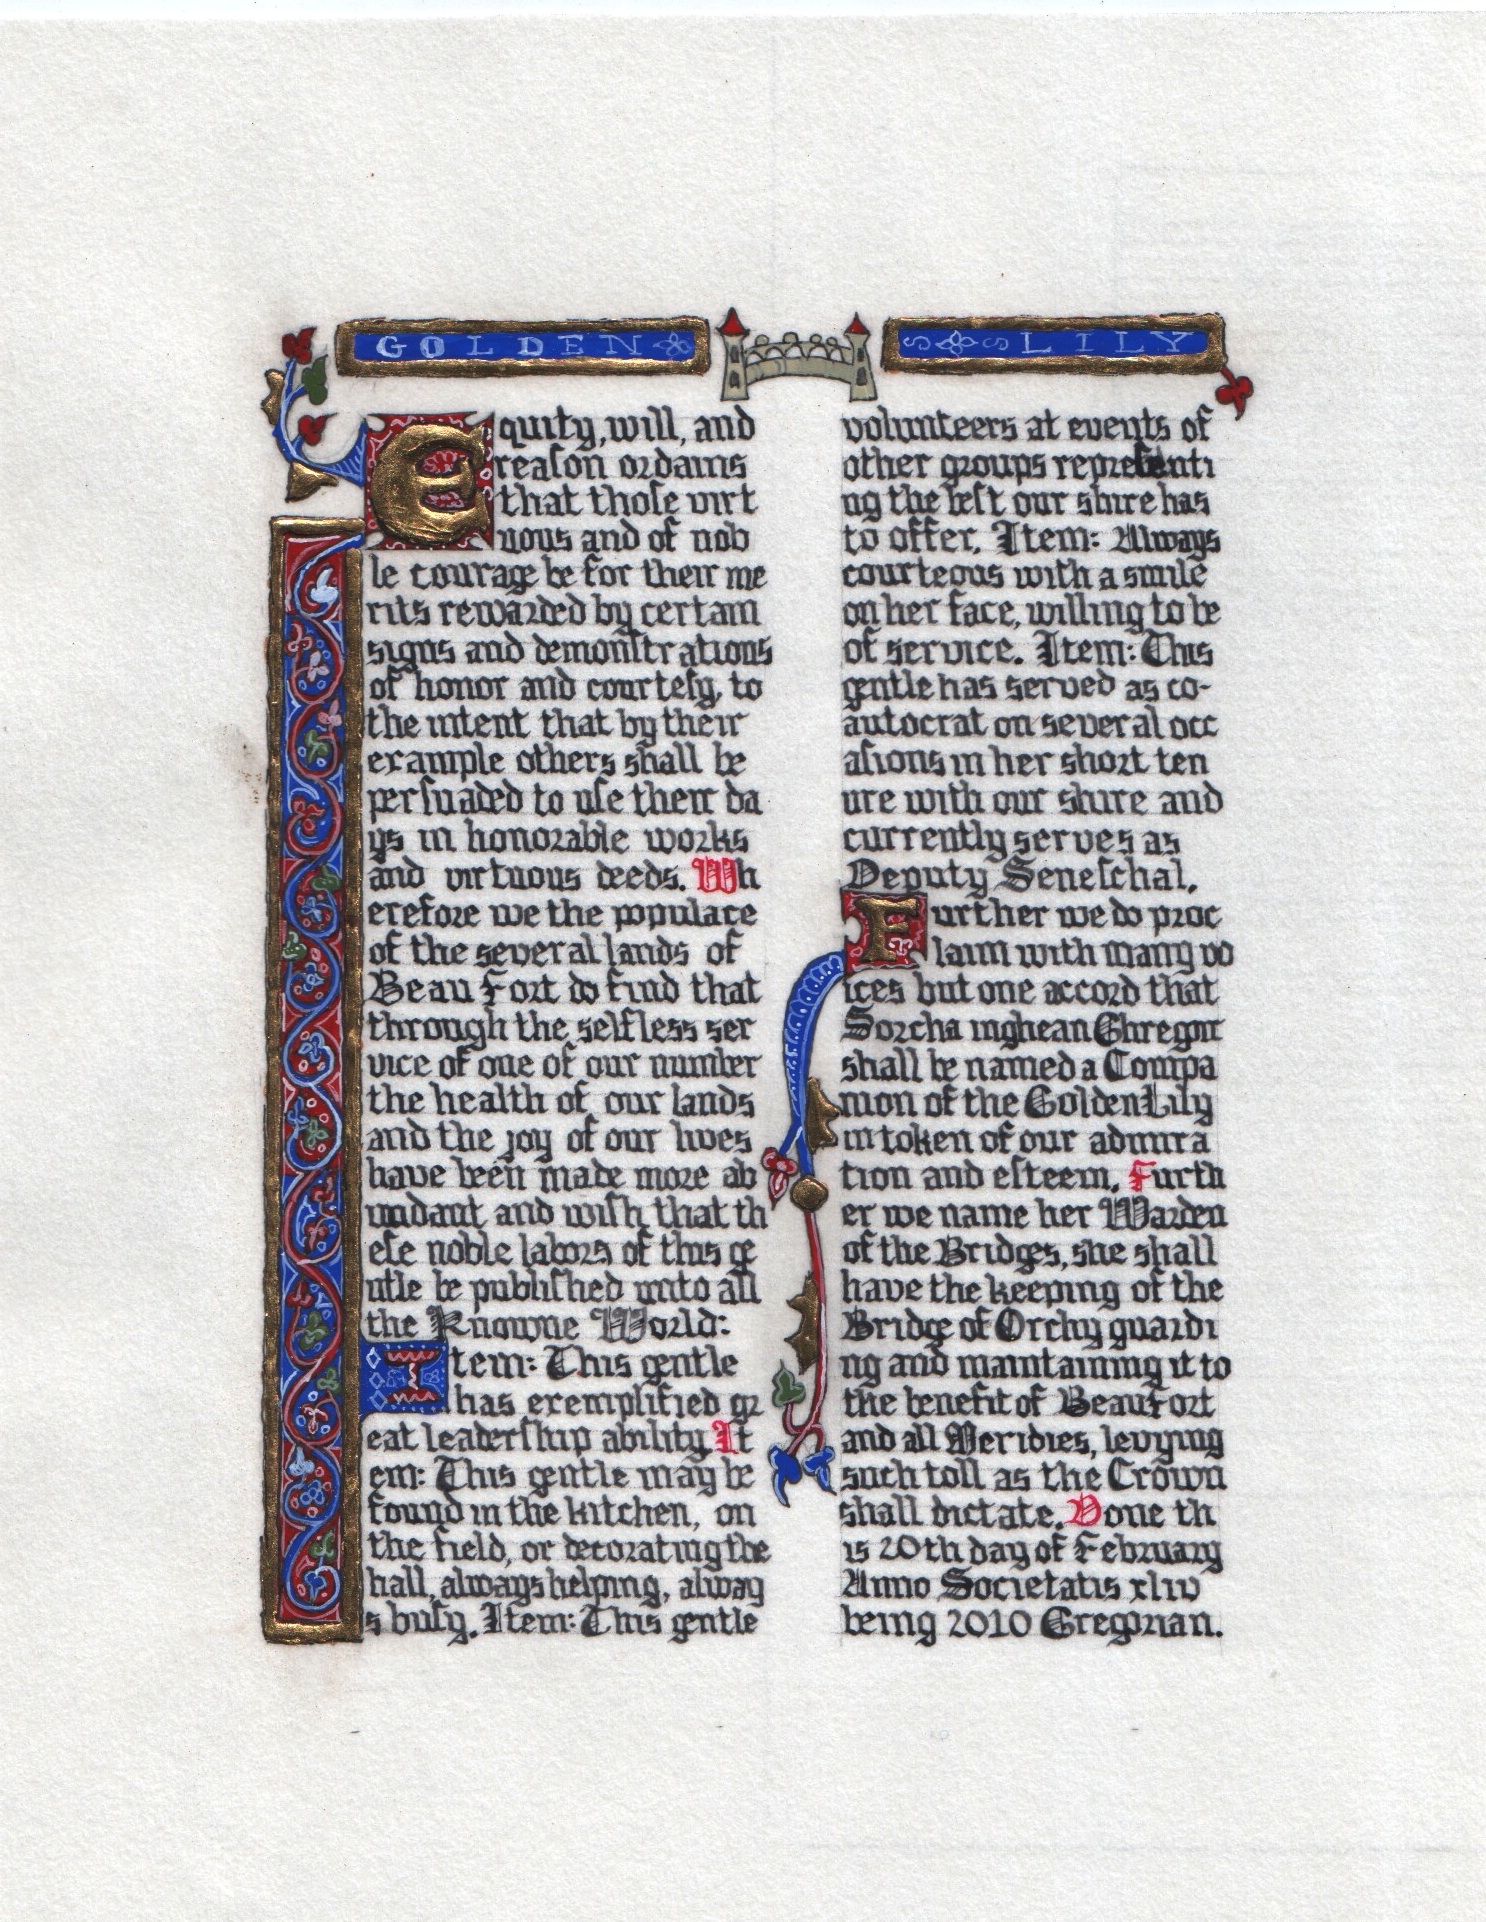 GOLDEN
LILY
Equity, will, and
reaſon ordains
that thoſe virt
uous and of nob
le courage be for their me
rits rewarded by certain
signs and demonſtrations
of honor and courteſy, to
the intent that by their
example others shall be
perſuaded to uſe their da
ys in honorable works
and virtuous deeds. Wh
erefore we the populace
of the several lands of
Beau Fort do find that
through the selfless ser
vice of one of our number
the health of our lands
and the joy of our lives
have been made more ab
undant and wiſh that th
eſe noble labors of this ge
ntle be publiſhed unto all
the Knowne World:
Item: This gentle
has exemplified gr
eat leaderſhip ability. It
em: This gentle may be
found in the kitchen, on
the field, or decorating the
hall, always helping, alway
s buſy. Item: This gentle
volunteers at events of
other groups repreſenti
ng the beſt our shire has
to offer. Item: Always
courteous with a smile
on her face, willing to be
of service. Item: This
gentle has served as co-
autocrat on several occ
aſions in her short ten
ure with our shire and
currently serves as
Deputy Seneſchal.
Further we do proc
laim with many vo
ices but one accord that
Sorcha inghean Ghregoir
shall be named a Compa
nion of the Golden Lily
in token of our admira
tion and eſteem. Furth
er we name her Warden
of the Bridges, she shall
have the keeping of the
Bridge of Orchy guardi
ng and maintaining it to
the benefit of Beau Fort
and all Meridies, levying
such toll as the Crown
shall dictate. Done th
is 20th day of February
Anno Societatis xliv
being 2010 Gregorian.